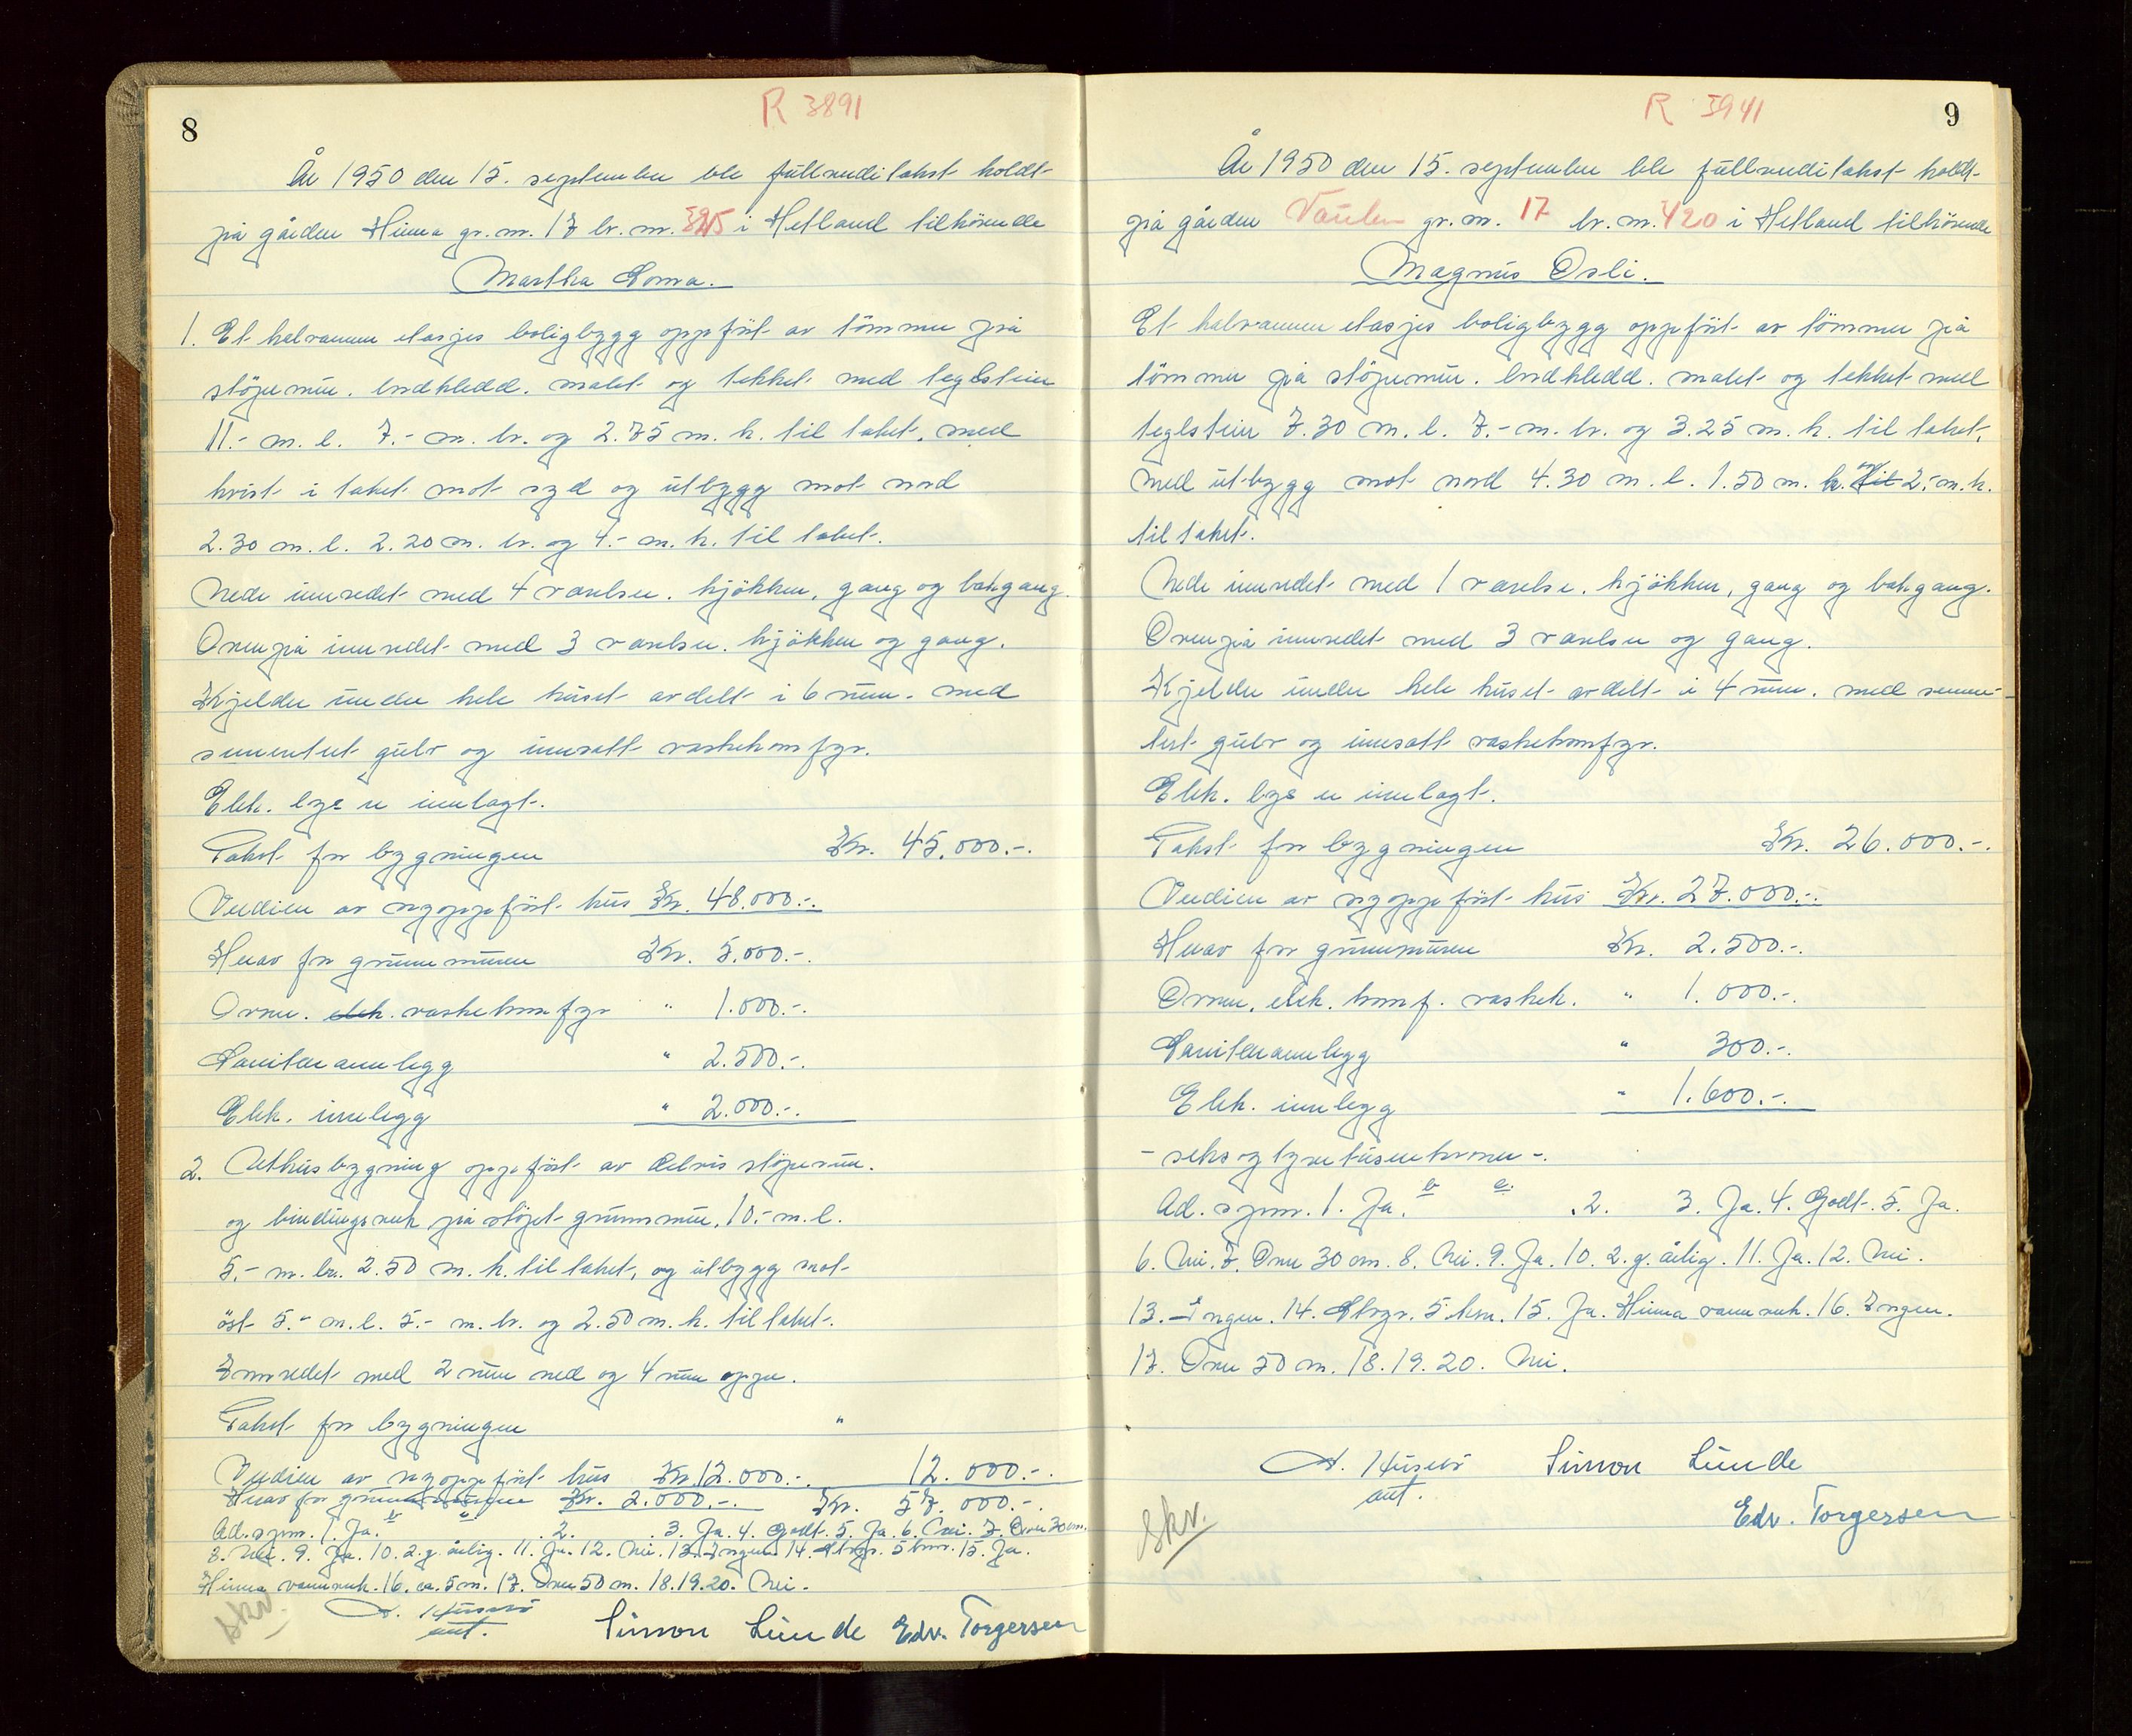 8
R 3891
År 1950 den 15. september ble fullverditakst holdt
på gården Hinna gr.nr. 17 br.nr. i Hetland tilhörende
Martha Soma.
1. Et halvannen etasjes boligbygg oppfört av tömmer på
stöpemur. bordkledd. malet og tekket med teglstein
11.- m.l. 7.- m.br. og 2.75 m.h. til taket, med
kvist i taket mot syd og utbygg mot nord
2.30 m.l. 2.20 m. br. og 4.- m.h. til taket.
Nede innredet med 4 værelser. kjökken, gang og bakgang.
Ovenpå innredet med 3 værelser. kjökken og gang.
Kjelder under hele huset avdelt i 6 rum. med
sementert gulv og innsatt vaskekomfyr.
Elek. lys er innlagt.
Takst for bygningen Kr. 45.000.-.
Verdien av nyoppfört hus Kr. 48.000.-.
Herav for grunnmuren Kr. 5.000.-.
Ovner. elek. vaskekomfyr " 1.000.-.
Sanitæranlegg " 2.500.-.
Elek. innlegg " 2.000.-.
2. Uthusbygning oppfört av delvis stöpemur.
og bindingsverk på stöpt grunnmur. 10.- m.l.
5.- m. br. 2.50 m.h. til taket, og utbygg mot
öst 5.- m.l. 5.- m.br. og 2.50 m.h. til taket.
Innredet med 2 rum ned og 4 rum oppe.
Takst for bygningen "
Verdien av nyoppfört hus Kr. 12.000.-. 12.000.-.
Herav for grunnmuren Kr. 2.000.-. Kr. 57.000.-.
Ad. spm. 1. Ja. b c. 2. 3. Ja. 4. Godt. 5. Ja. 6. Nei. 7. Over 30 cm.
8. Nei. 9. Ja. 10. 2.g. årlig. 11. Ja. 12. Nei. 13. Ingen. 14. Stvgr. 5 km. 15. Ja.
Hinna vannverk. 16. ca. 5 m. 17. Over 50 m. 18. 19. 20. Nei.
A. Husebö Simon Lunde Edv. Torgersen
aut.
Skv.
9
R 3941
År 1950 den 15. september ble fullverditakst holdt
på gården Vaulen gr.nr. 17 br.nr. 420 i Hetland tilhörende
Magnus Osli.
Et halvannen etasjes boligbygg oppfört av tömmer på
tömmer på stöpemur. bordkledd. malet og tekket med
teglstein 7.30 m.l. 7.- m.br. og 3.25 m.h. til taket,
med utbygg mot nord 4.30 m.l. 1.50 m. b. og til 2.- m.h.
til taket.
Nede innredet med 1 værelse. kjökken, gang og bakgang.
Ovenpå innredet med 3 værelser og gang.
Kjelder under hele huset avdelt i 4 rum. med semen-
tert gulv og innsatt vaskekomfyr.
Elek. lys er innlagt.
Takst for bygningen Kr. 26.000.-.
Verdien av nyoppfört hus Kr. 27.000.-.
Herav for grunnmuren Kr. 2.500.-.
Ovner. elek. komf. vaskek. " 1.000.-.
Sanitæranlegg " 300.-.
Elek. innlegg " 1.600.-.
- seksogtyvetusenkroner -.
Ad. spm. 1. Ja. b c. 2. 3. Ja. 4. Godt. 5. Ja.
6. Nei. 7. Over 30 cm. 8. Nei. 9. Ja. 10. 2.g. årlig. 11. Ja. 12. Nei.
13. Ingen. 14. Stvgr. 5 km. 15. Ja. Hinna vannverk. 16. Ingen.
17. Over 50 m. 18. 19. 20. Nei.
A. Husebö Simon Lunde
aut.
Edv. Torgersen
Skv.